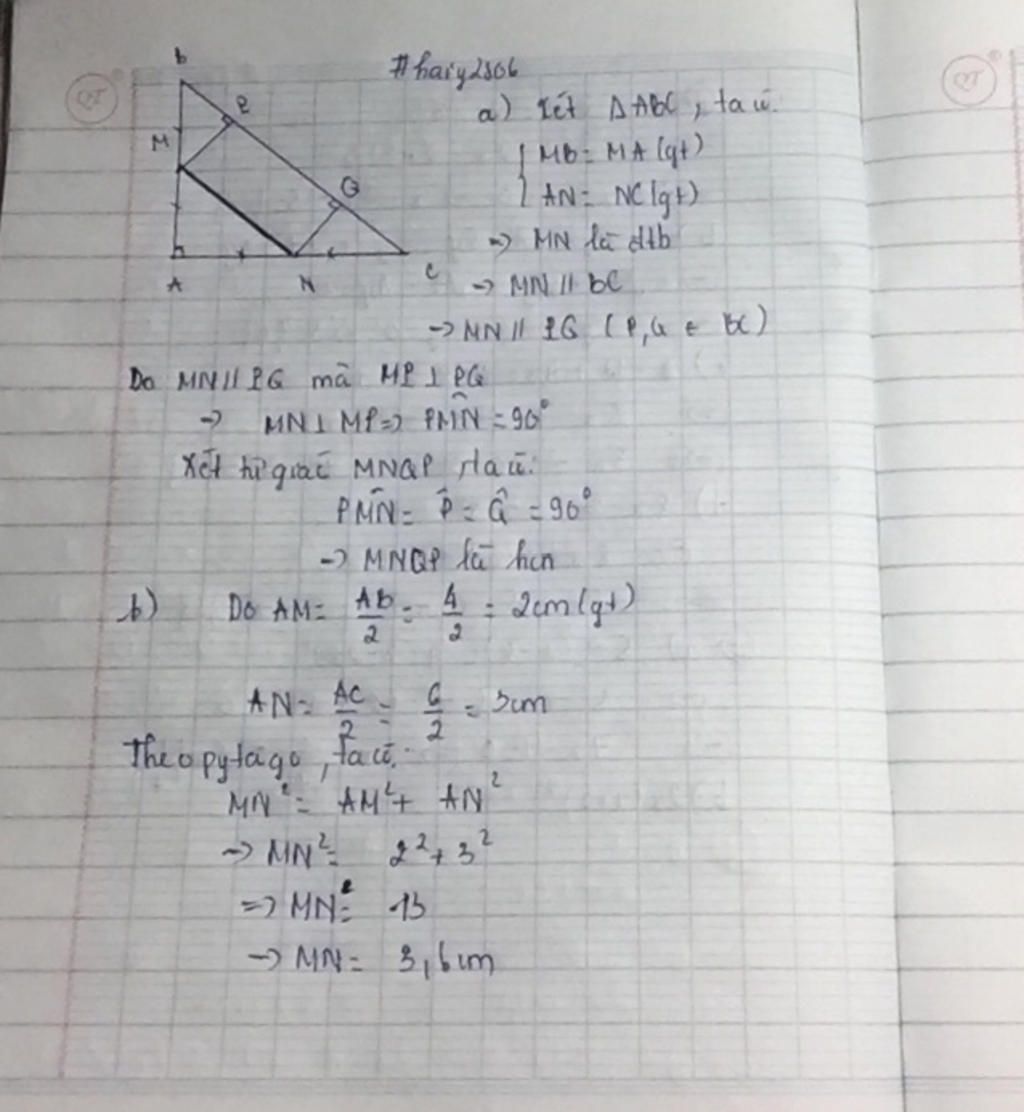 #hary2506
B
P
M
Q
A
N
C
a) Xét ΔABC, ta có:
{ MB = MA (gt)
AN = NC (gt)
→ MN là đtb
→ MN // BC
→ MN // PQ (P, Q ∈ BC)
Do MN // PQ mà MP ⊥ PQ
→ MN ⊥ MP => PM̂N = 90°
Xét tứ giác MNQP, ta có:
PM̂N = P̂ = Q̂ = 90°
→ MNQP là hcn
b) Do AM = AB/2 = 4/2 = 2cm (gt)
AN = AC/2 = 6/2 = 3cm
Theo pytago, ta có:
MN² = AM² + AN²
→ MN² = 2² + 3²
=> MN² = 13
→ MN = 3,6cm